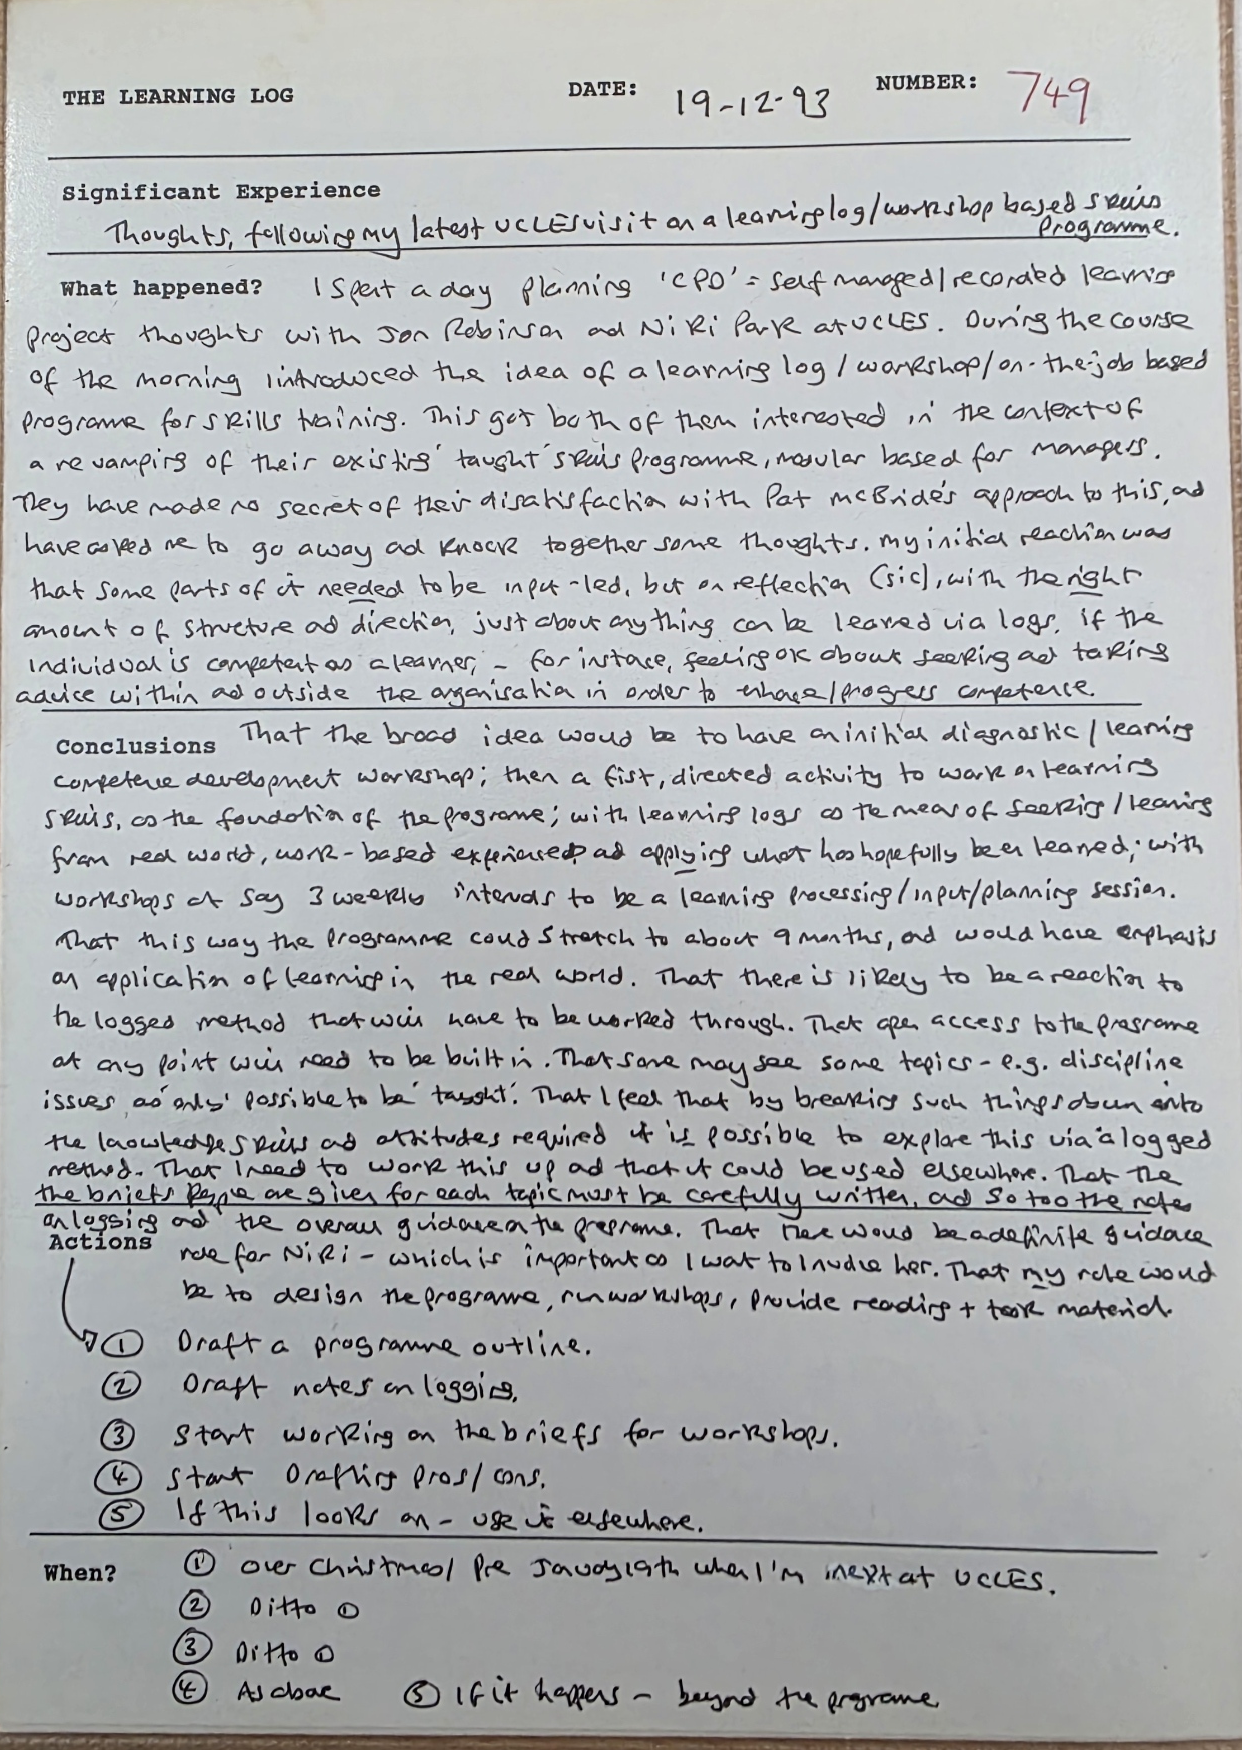 THE LEARNING LOG DATE: 19-12-93 NUMBER: 749
Significant Experience
Thoughts, following my latest UCLES visit on a learning log/workshop based skills
Programme.
What happened? I spent a day planning 'CPD' = self managed/recorded learning
project thoughts with Jon Robinson and Niki Park at UCLES. During the course
of the morning I introduced the idea of a learning log / workshop/on-the-job based
programme for skills training. This got both of them interested in the context of
a revamping of their existing 'taught' skills programme, modular based for managers.
They have made no secret of their disatisfaction with Pat McBride's approach to this, and
have asked me to go away and knock together some thoughts. My initial reaction was
that some parts of it needed to be input-led, but on reflection (sic), with the right
amount of structure and direction, just about anything can be learned via logs, if the
individual is competent as a learner, - for instance, feeling OK about seeking and taking
advice within and outside the organisation in order to enhance/progress competence.
Conclusions That the broad idea would be to have an initial diagnostic / learning
competence development workshop; then a fist, directed activity to work on learning
skills, as the foundation of the programme; with learning logs as the means of seeking/learning
from real world, work-based experiences and applying what has hopefully been learned; with
workshops at say 3 weekly intervals to be a learning processing/input/planning session.
That this way the programme could stretch to about 9 months, and would have emphasis
on application of learning in the real world. That there is likely to be a reaction to
the logged method that will have to be worked through. That open access to the programme
at any point will need to be built in. That some may see some topics - e.g. discipline
issues, as 'only' possible to be 'taught'. That I feel that by breaking such things down into
the knowledge skills and attitudes required it is possible to explore this via a logged
method. That I need to work this up and that it could be used elsewhere. That the
the briefs people are given for each topic must be carefully written, and so too the notes
on logging and the overall guidance on the programme. That there would be a definite guidance
Actions role for Niki - which is important as I want to involve her. That my role would
be to design the programme, run workshops, provide reading + task material.
① Draft a programme outline.
② Draft notes on logging.
③ Start working on the briefs for workshops.
④ Start drafting pros/cons.
⑤ If this looks on - use it elsewhere.
When? ① Over Christmas/ Pre January 19th when I'm next at UCLES.
② Ditto ①
③ Ditto ①
④ As above ⑤ If it happens - beyond the programme